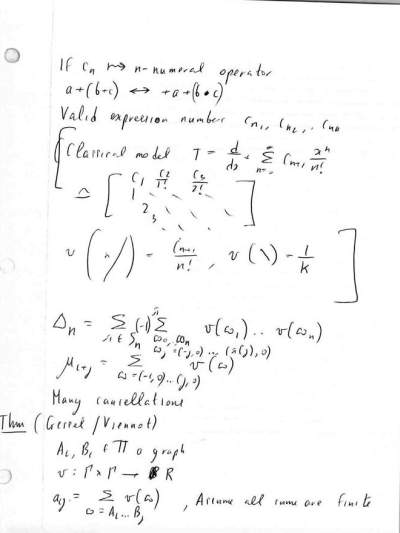 If Cn ↔ n-numeral operator
a+(b+c) ↔ +a+(b•c)
Valid expression numbers Cn1, Cn2, .. Cnn
Classical model T = d/dx + ∑ Cn+1 x^n/n!
≙ [ C1 C2/1! C3/2!
1
2
3 ]
v( n/ ) = Cn+1/n! , v( \ ) = 1/k ]
Δn = ∑ (-1)^π ∑ v(ω1) .. v(ωn)
π ∈ Sn ω0, .. ωn
ωj = (-j,0) ... (π(j),0)
μi+j = ∑ v(ω)
ω=(-i,0)..(j,0)
Many cancellations
Thm (Gessel / Viennot)
Ai, Bi ∈ Π a graph
v: Γ × Γ → R
aij = ∑ v(ω) , Assume all sums are finite
ω = Ai ... Bj